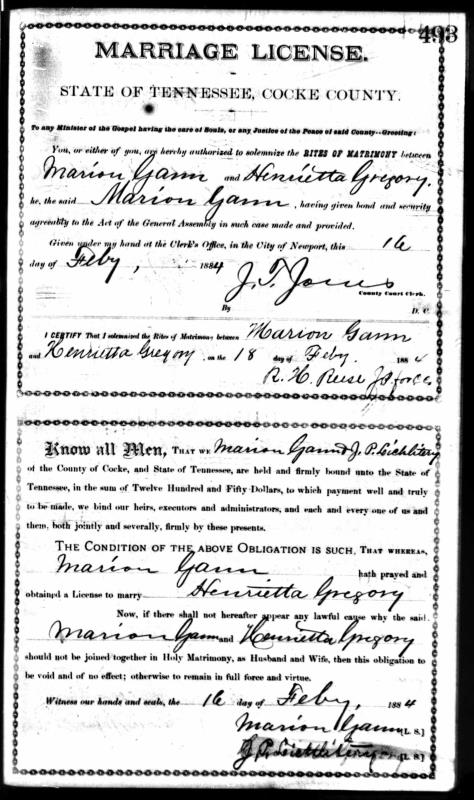 493
MARRIAGE LICENSE.
STATE OF TENNESSEE, COCKE COUNTY.
To any Minister of the Gospel having the care of Souls, or any Justice of the Peace of said County--Greeting:
You, or either of you, are hereby authorized to solemnize the RITES OF MATRIMONY between
Marion Gann and Henrietta Gregory.
he, the said Marion Gann, having given bond and security
agreeably to the Act of the General Assembly in such case made and provided.
Given under my hand at the Clerk's Office, in the City of Newport, this 16
day of Feby, 1884
J. T. Jones
County Court Clerk.
By D. C.
I CERTIFY That I solemnized the Rites of Matrimony between Marion Gann
and Henrietta Gregory, on the 18 day of Feby. 1884
R. H. Reese J P for C C
Know all Men, THAT WE Marion Gann & J. P.
of the County of Cocke, and State of Tennessee, are held and firmly bound unto the State of
Tennessee, in the sum of Twelve Hundred and Fifty Dollars, to which payment well and truly
to be made, we bind our heirs, executors and administrators, and each and every one of us and
them, both jointly and severally, firmly by these presents.
THE CONDITION OF THE ABOVE OBLIGATION IS SUCH, THAT WHEREAS,
Marion Gann hath prayed and
obtained a License to marry Henrietta Gregory
Now, if there shall not hereafter appear any lawful cause why the said
Marion Gann and Henrietta Gregory
should not be joined together in Holy Matrimony, as Husband and Wife, then this obligation to
be void and of no effect; otherwise to remain in full force and virtue.
Witness our hands and seals, the 16 day of Feby, 1884
Marion Gann [L. S.]
J. P. [L. S.]